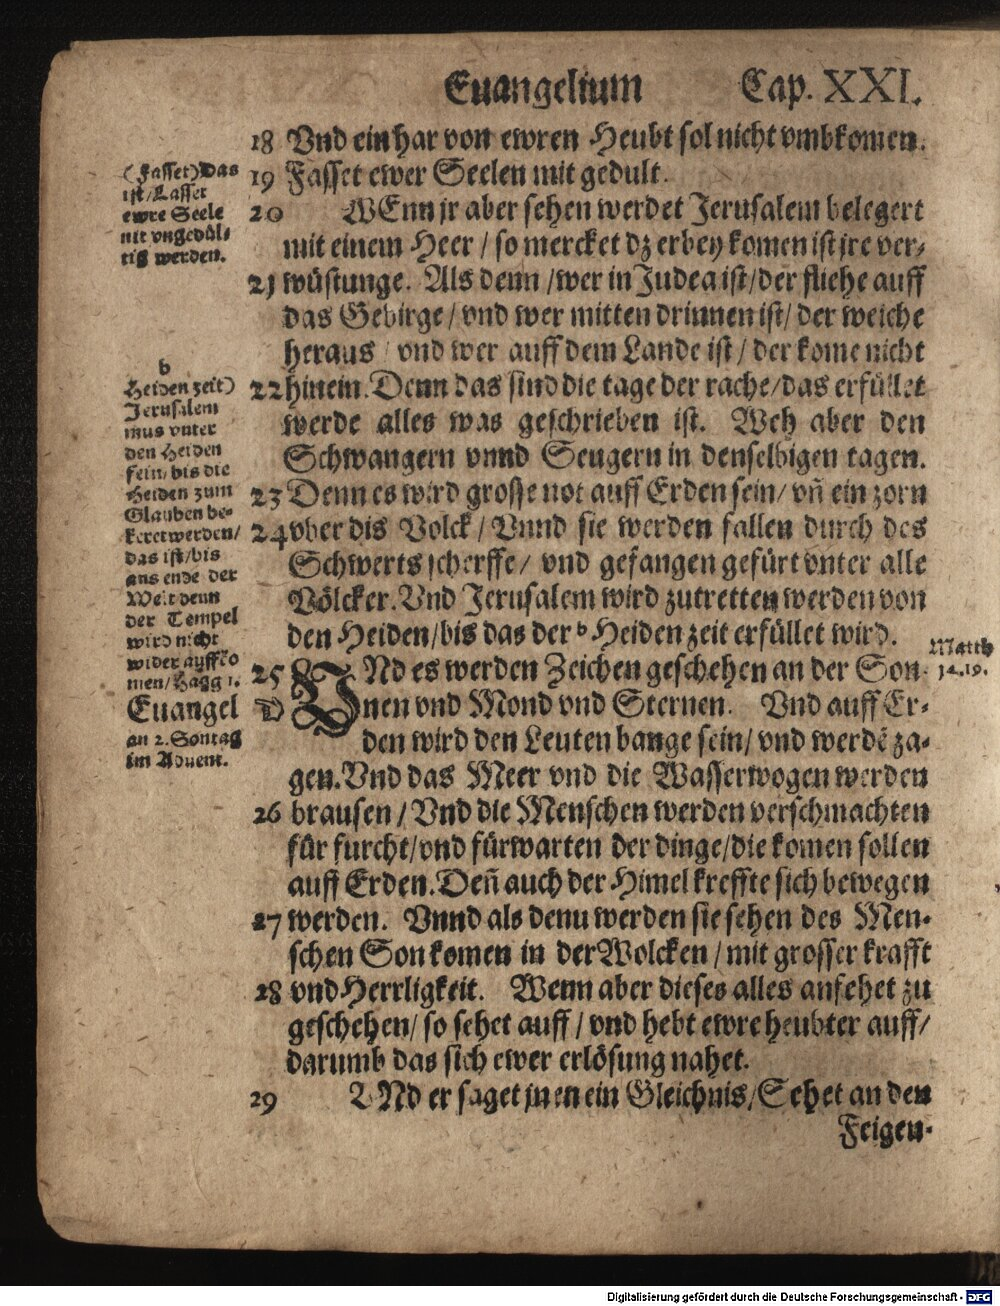 Euangelium Cap. XXI.
18 Vnd ein har von ewren Heubt sol nicht vmbkomen.
19 Fasset ewer Seelen mit gedult.
20 WEnn jr aber sehen werdet Jerusalem belegert
mit einem Heer / so mercket dz erbey komen ist jre ver-
21 wüstunge. Als denn / wer in Judea ist / der fliehe auff
das Gebirge / vnd wer mitten drinnen ist / der weiche
heraus / vnd wer auff dem Lande ist / der kome nicht
22 hinein. Denn das sind die tage der rache / das erfüllet
werde alles was geschrieben ist. Weh aber den
Schwangern vnnd Seugern in denselbigen tagen.
23 Denn es wird grosse not auff Erden sein / vñ ein zorn
24 vber dis Volck / Vnnd sie werden fallen durch des
Schwerts scherffe / vnd gefangen gefürt vnter alle
Völcker. Vnd Jerusalem wird zutretten werden von
den Heiden / bis das der b Heiden zeit erfüllet wird.
25 VNd es werden Zeichen geschehen an der Son-
D nen vnd Mond vnd Sternen. Vnd auff Er-
den wird den Leuten bange sein / vnd werdē za-
gen. Vnd das Meer vnd die Wasserwogen werden
26 brausen / Vnd die Menschen werden verschmachten
für furcht / vnd fürwarten der dinge / die komen sollen
auff Erden. Deñ auch der Himel kreffte sich bewegen
27 werden. Vnnd als denn werden sie sehen des Men-
schen Son komen in der Wolcken / mit grosser krafft
28 vnd Herrligkeit. Wenn aber dieses alles anfehet zu
geschehen / so sehet auff / vnd hebt ewre heubter auff /
darumb das sich ewer erlösung nahet.
29 VNd er saget jnen ein Gleichnis / Sehet an den
Feigen-
(Fasset) Das
ist / Lasset
ewre Seele
nit vngedül-
tig werden.
b
Heiden zeit)
Jerusalem
mus vnter
den Heiden
sein / bis die
Heiden zum
Glauben be-
keret werden /
das ist / bis
ans ende der
Welt denn
der Tempel
wird nicht
wider auffko
men / Hagg 1.
Euangel
an 2. Sontag
im Aduent.
Matth
24.29.
Digitalisierung gefördert durch die Deutsche Forschungsgemeinschaft - DFG